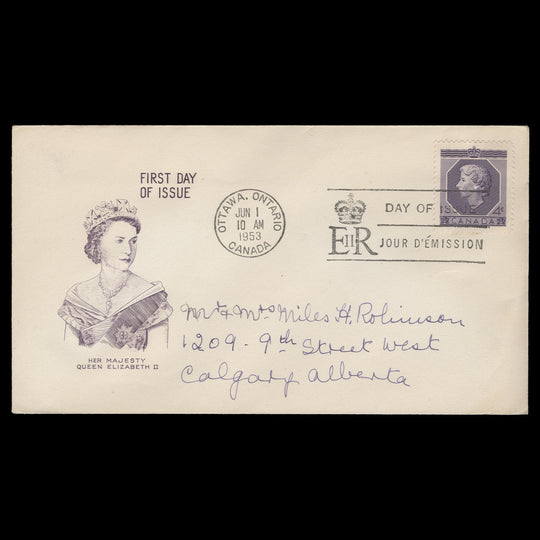 FIRST DAY
OF ISSUE
OTTAWA, ONTARIO
JUN 1
10 AM
1953
CANADA
DAY OF ISSUE
EIIR JOUR D'ÉMISSION
4¢
CANADA
Mr & Mrs Miles H. Robinson
1209 - 9th Street West
Calgary Alberta
HER MAJESTY
QUEEN ELIZABETH II